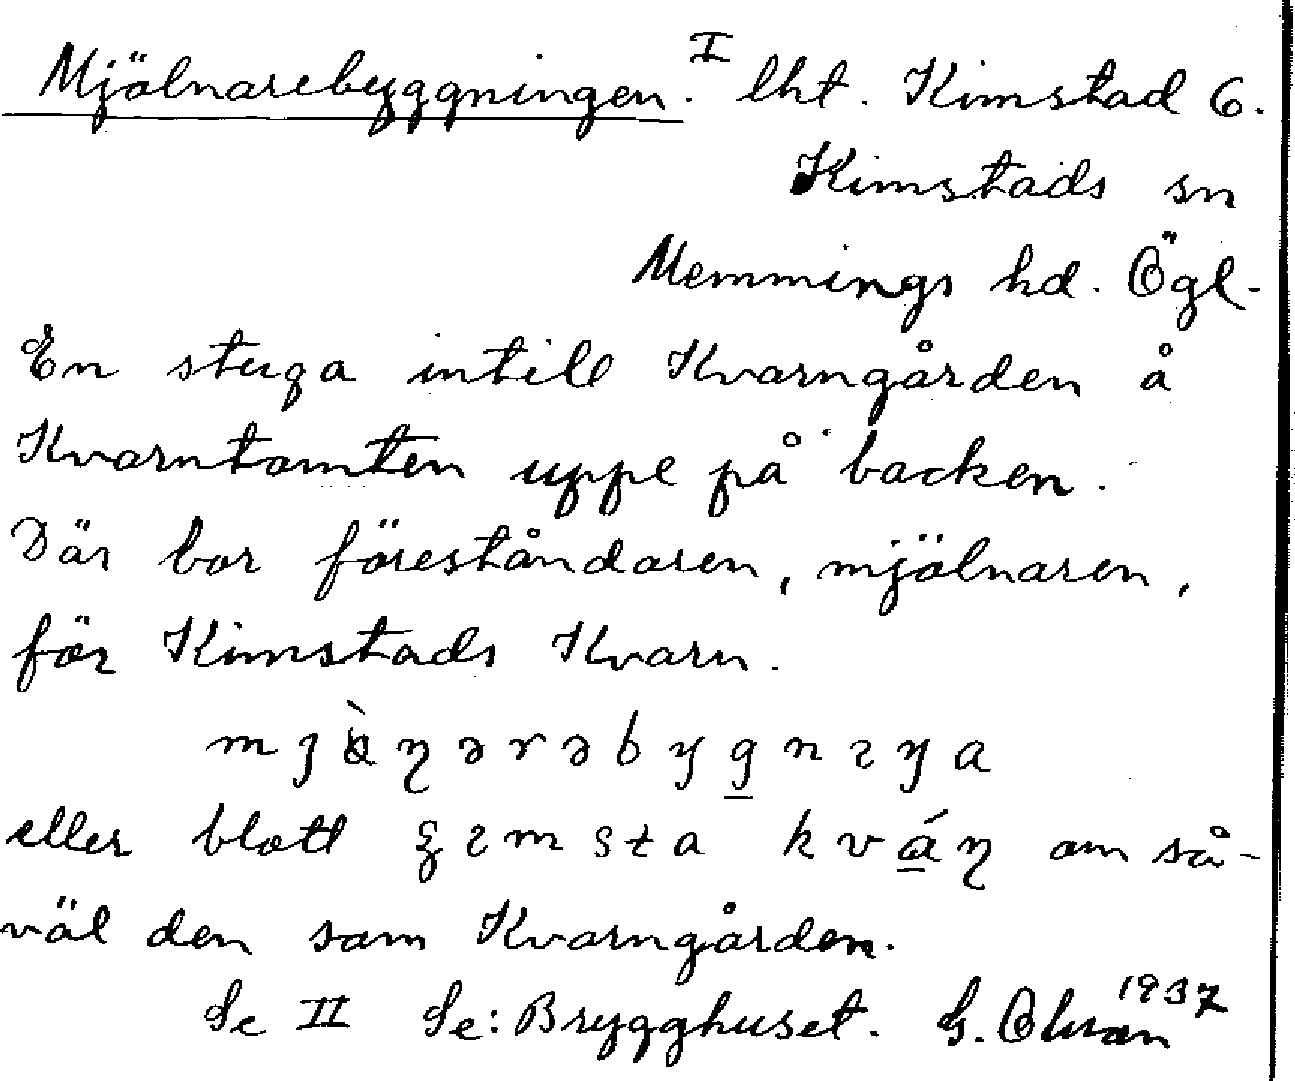 Mjölnarebyggningen. I lht. Kimstad 6.
Kimstads sn
Memmings hd. Ögl.
En stuga intill Kvarngården å
Kvarntomten uppe på backen.
Där bor föreståndaren, mjölnaren,
för Kimstads Kvarn.
eller blott om så-
väl den som Kvarngården.
Se II Se: Brygghuset. G. 1937